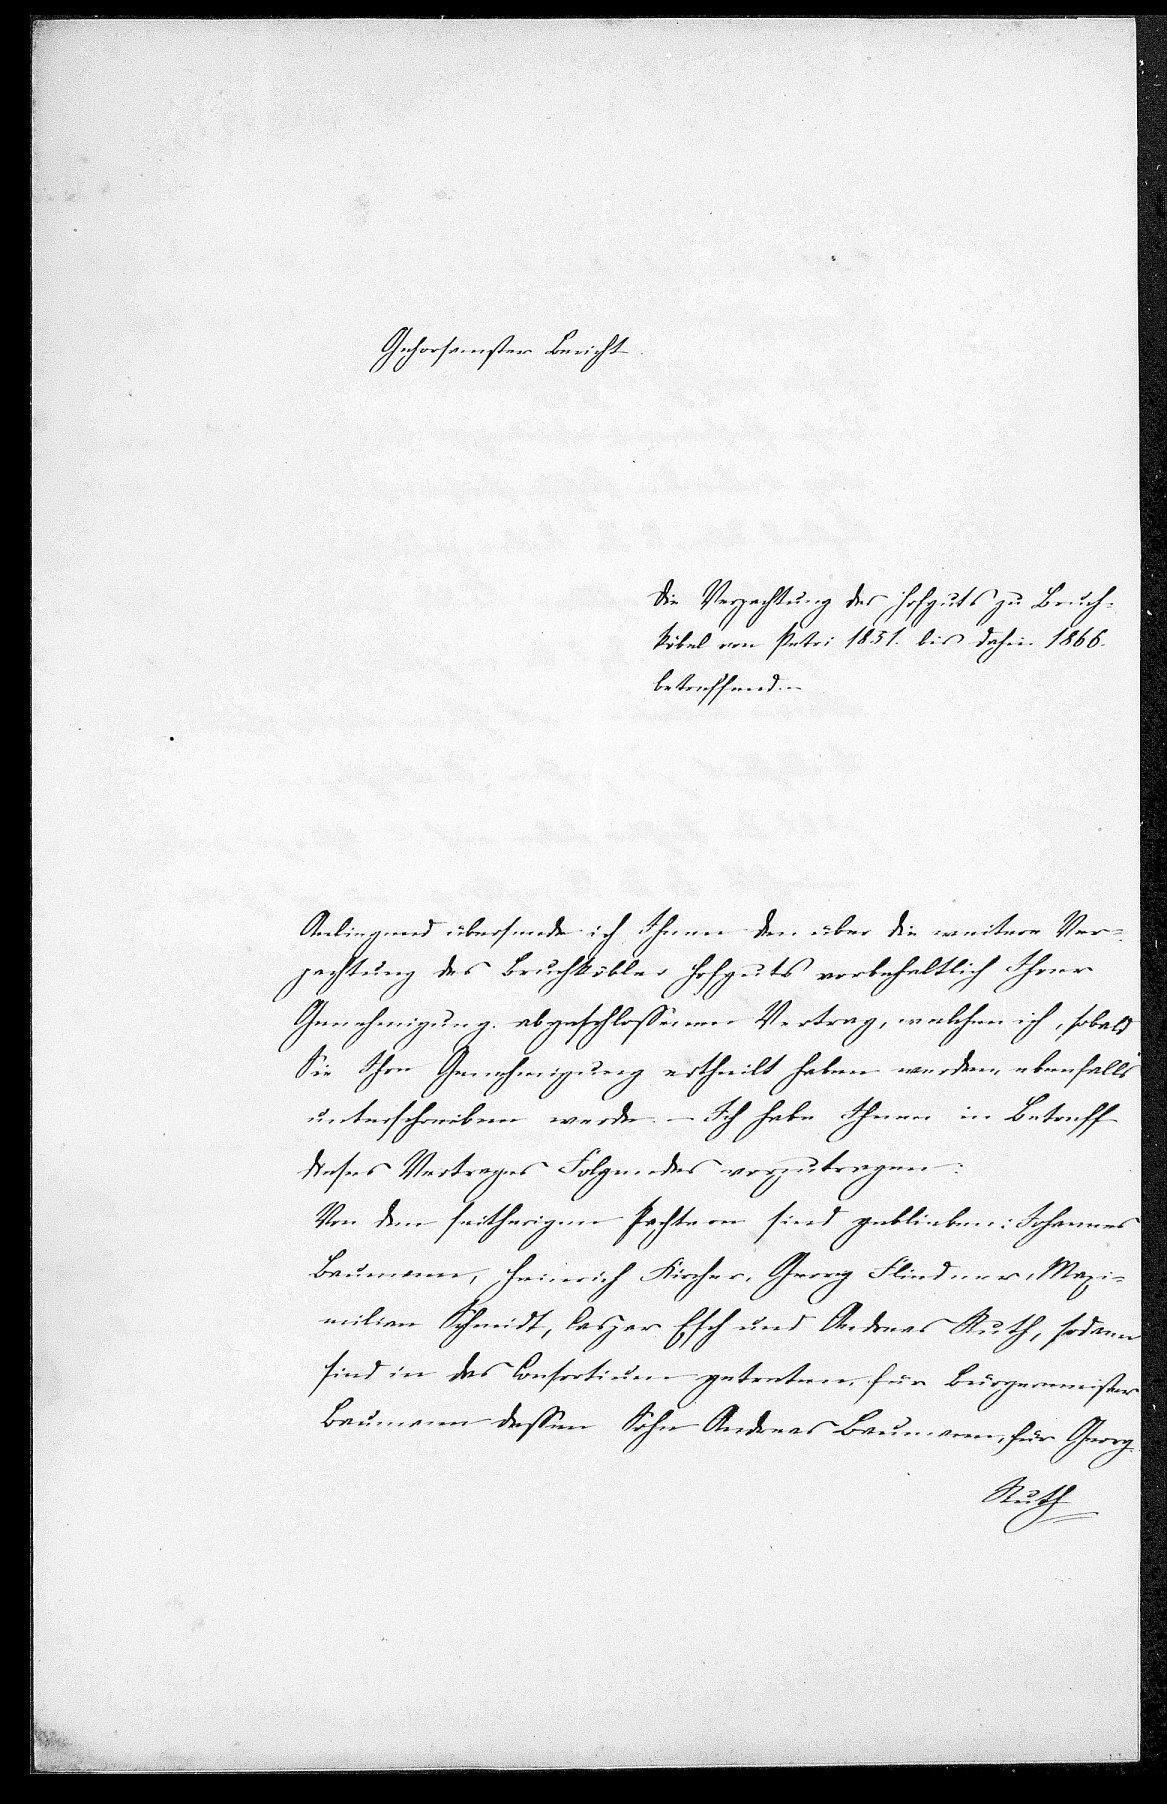 Gehorsamster Bericht.
Die Verpachtung des Hofguts zu Bruch-
köbel von Petri 1851. bis dahin 1866.
betreffend.–
Anliegend übersende ich Ihnen den über die weitere Ver-
pachtung des Bruchköbler Hofguts vorbehaltlich Ihrer
Genehmigung abgeschlossenen Vertrag, welchen ich, sobald
Sie Ihre Genehmigung ertheilt haben werden, ebenfalls
unterschreiben werde. – Ich habe Ihnen in Betreff
dieses Vertrages Folgendes vorzutragen:
Von den seitherigen Pächtern sind geblieben: Johannes
Baumann, Heinrich Kircher, Georg Flindner, Maxi-
milian Schmidt, Caspar Esch und Andreas Ruth, sodann
sind in das Consortium getreten, für Bürgermeister
Baumann dessen Sohn Andreas Baumann, für Georg
Ruth